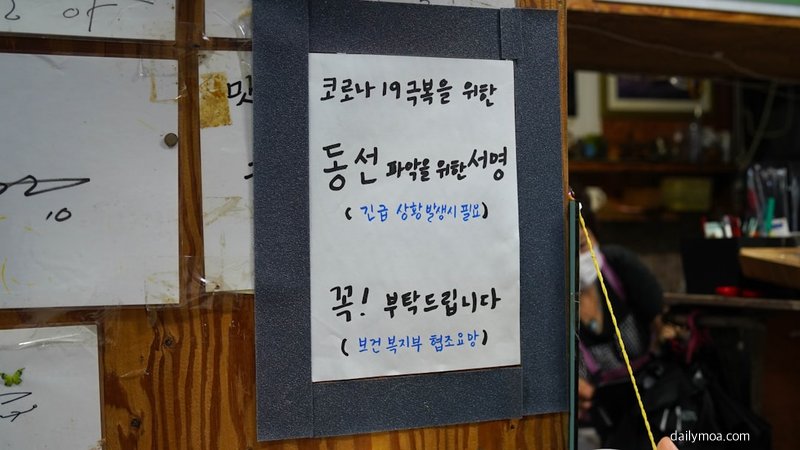 코로나 19 극복을 위한
동선 파악을 위한 서명
( 긴급 상황 발생시 필요)
꼭! 부탁드립니다
( 보건복지부 협조요망)
맛
10
dailymoa.com